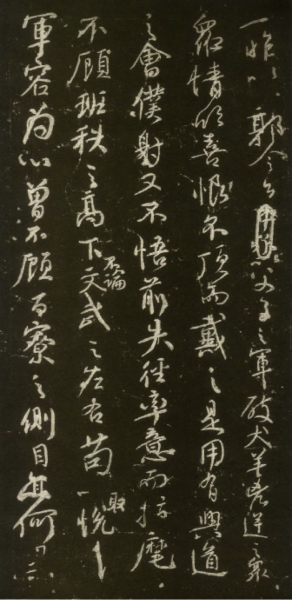 一昨以郭令公父子之軍破犬羊兇逆之衆
衆情欣喜恨不頂而戴之是用有興道
之會僕射又不悟前失徑率意而指麾
不顧班秩之高下不論文武之左右苟以取悅
軍容為心曾不顧百寮之側目亦何